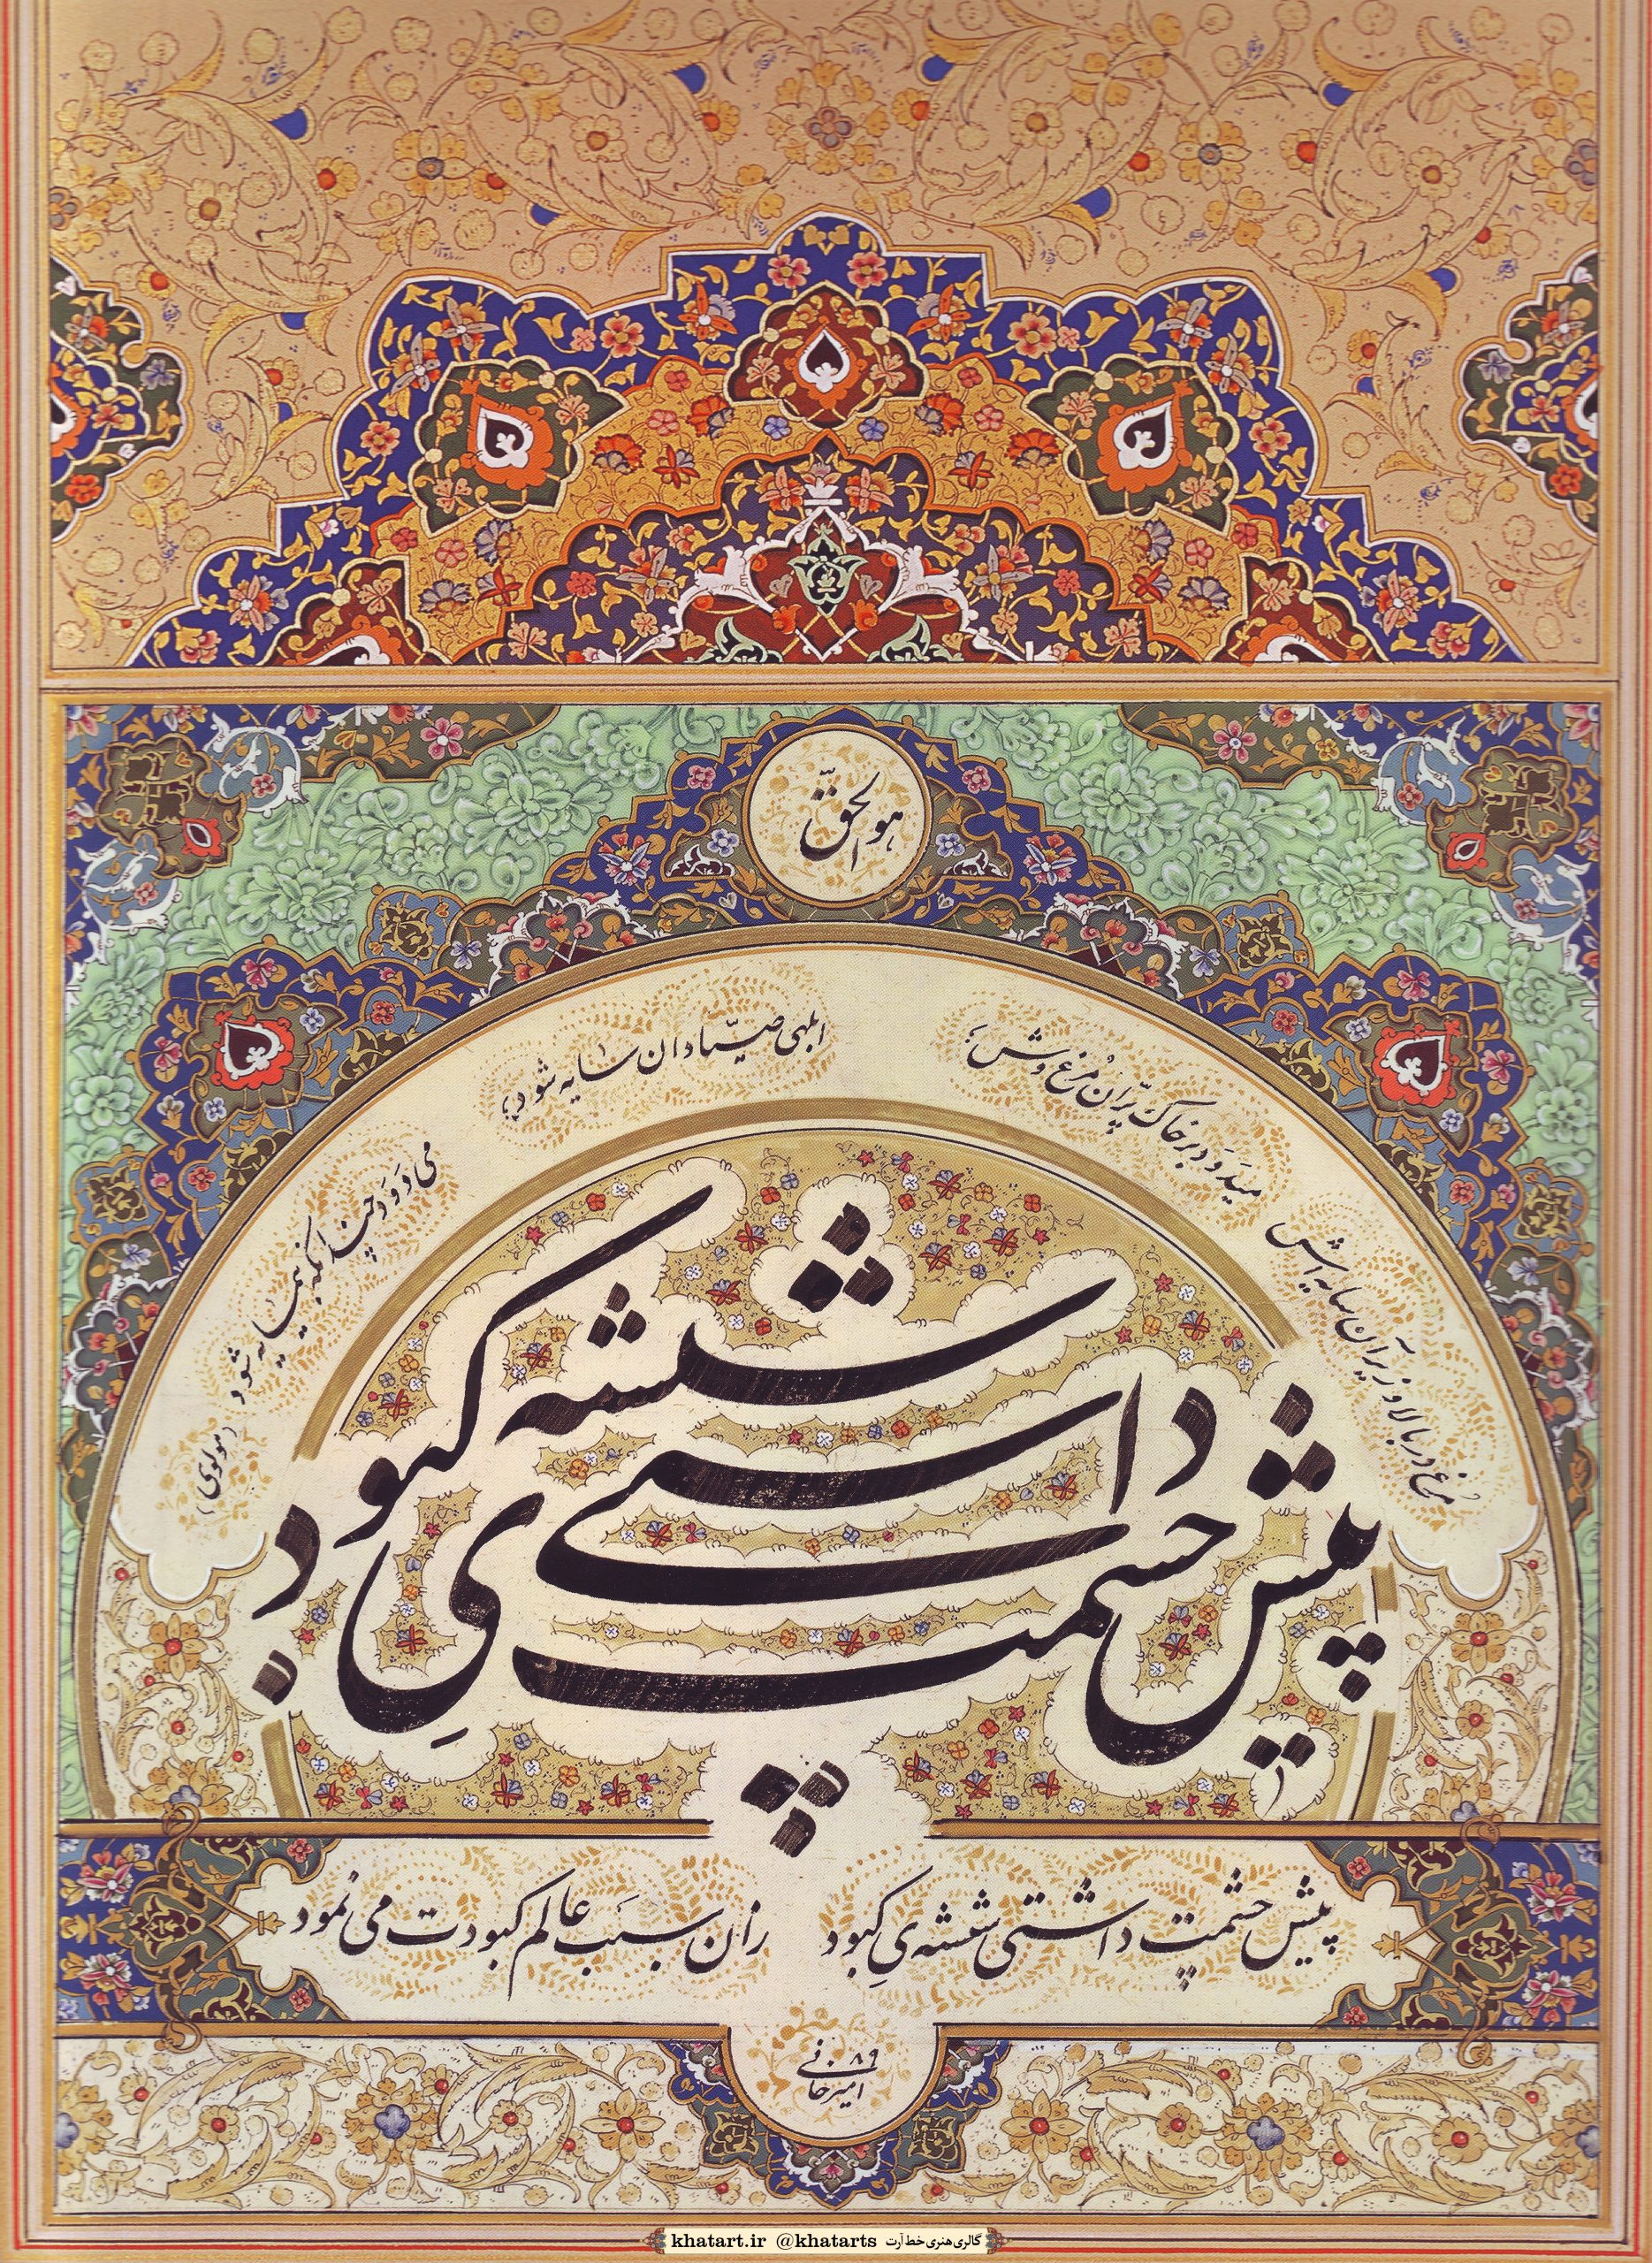 هو الحقّ
مرغ در بالا و زیر آن سایه‌اش
میدَوَد بر خاک پرّان مُرغ‌وش
ابلهی صیّاد آن سایه شود
می‌دَوَد چندانکه بیمایه شود
(مولوی)
پیش چشمت داشتی شیشه‌ی کبود
پیش چشمت داشتی شیشه‌یِ کبود
زان سبَب عالم کبودت می‌نمود
امیرخانی ۸۹
گالری هنری خط آرت @khatarts khatart.ir